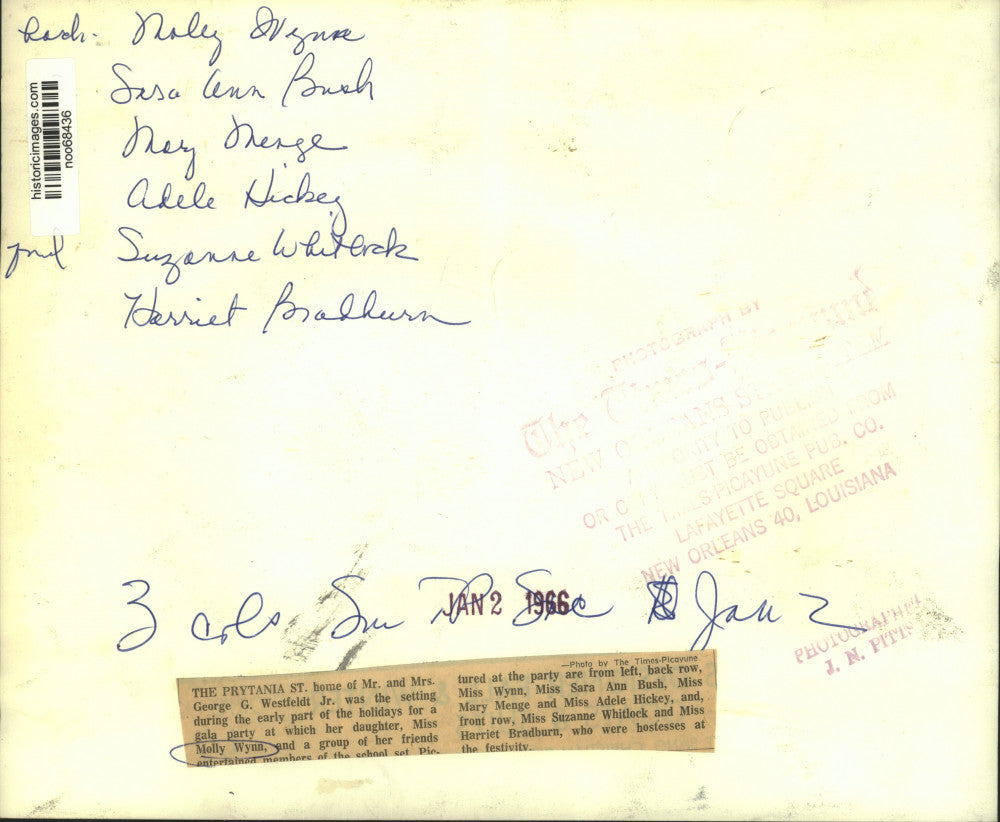 back. Molly Wynne
Sara Ann Bush
Mary Menge
Adele Hickey
Suzanne Whitlock
Harriet Bradburn
historicimages.com
noo68436
PHOTOGRAPH BY
The
NEW ORLEANS
TO
BE OBTAINED FROM
OR
THE TIMES-PICAYUNE PUB. CO.
LAFAYETTE SQUARE
NEW ORLEANS 40, LOUISIANA
3 cols Sun TP Soc Jan 2
JAN 2 1966
PHOTOGRAPHER
J. N. PITTS
THE PRYTANIA ST. home of Mr. and Mrs.
George G. Westfeldt Jr. was the setting
during the early part of the holidays for a
gala party at which her daughter, Miss
Molly Wynn, and a group of her friends
entertained members of the school set. Pic-
—Photo by The Times-Picayune
tured at the party are from left, back row,
Miss Wynn, Miss Sara Ann Bush, Miss
Mary Menge and Miss Adele Hickey, and,
front row, Miss Suzanne Whitlock and Miss
Harriet Bradburn, who were hostesses at
the festivity.